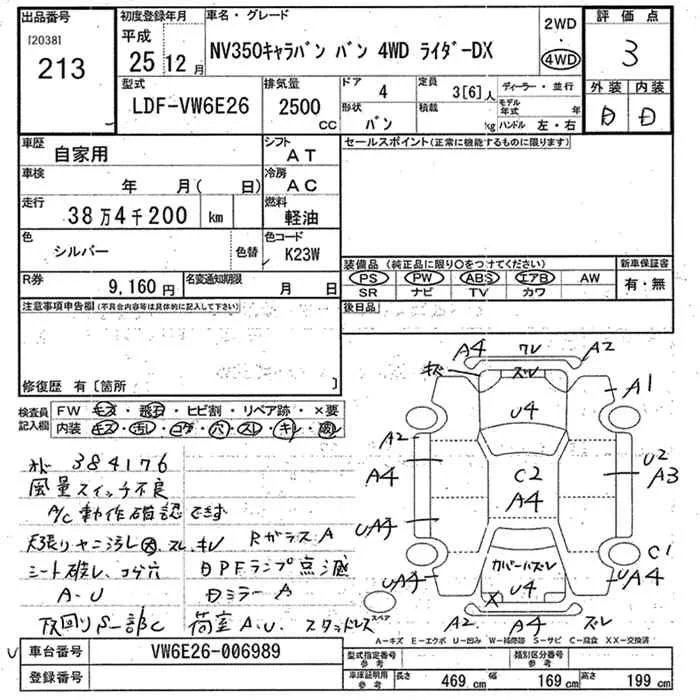 出品番号
[2038]
213
初度登録年月
平成
25年12月
車名・グレード
NV350キャラバン バン 4WD ライダーDX
2WD
・
4WD
評価点
3
外装 内装
D D
型式
LDF-VW6E26
排気量
2500
CC
ドア
4
形状
バン
定員
3[6]人
積載
kg
ディーラー・並行
モデル年式 年
ハンドル 左・右
車歴
自家用
シフト
AT
車検
年 月( 日)
冷房
AC
走行
38万4千200 km
燃料
軽油
色
シルバー
色替
色コード
K23W
R券
9,160円
名変通知期限
月 日
セールスポイント(正常に機能するものに限ります)
装備品 (純正品に限り○をつけてください)
PS PW ABS エアB AW
SR ナビ TV カワ
新車保証書
有・無
後日品
注意事項申告欄(不具合内容等は具体的に記入して下さい)
修復歴 有〔箇所 〕
検査員記入欄
FW キズ・飛石・ヒビ割・リペア跡・×要
内装 キズ・汚レ・コゲ・穴・スレ・キレ・破レ
メド 384176
風量スイッチ不良
A/C動作確認できず
天張りヤニ汚レ大、スレ、キレ
シート破レ、コゲ穴
A・U
RガラスA
DPFランプ点滅
DミラーA
荷室A.U. スタッドレス
A4 ワレ A2
キズ ズレ
A1
U4
A2
A4
C2
A4
U2
A3
UA4
C1
UA4
カバーハズレ
U4
X
UA4
スペア
A2 A4 ズレ
A-キズ E-エクボ U-凹み W-補修跡 S-サビ C-腐食 XX-交換済
車台番号
VW6E26-006989
登録番号
型式指定番号
参考
類別区分番号
参考
車庫証明用
参考
長さ 469 cm
幅 169 cm
高さ 199 cm